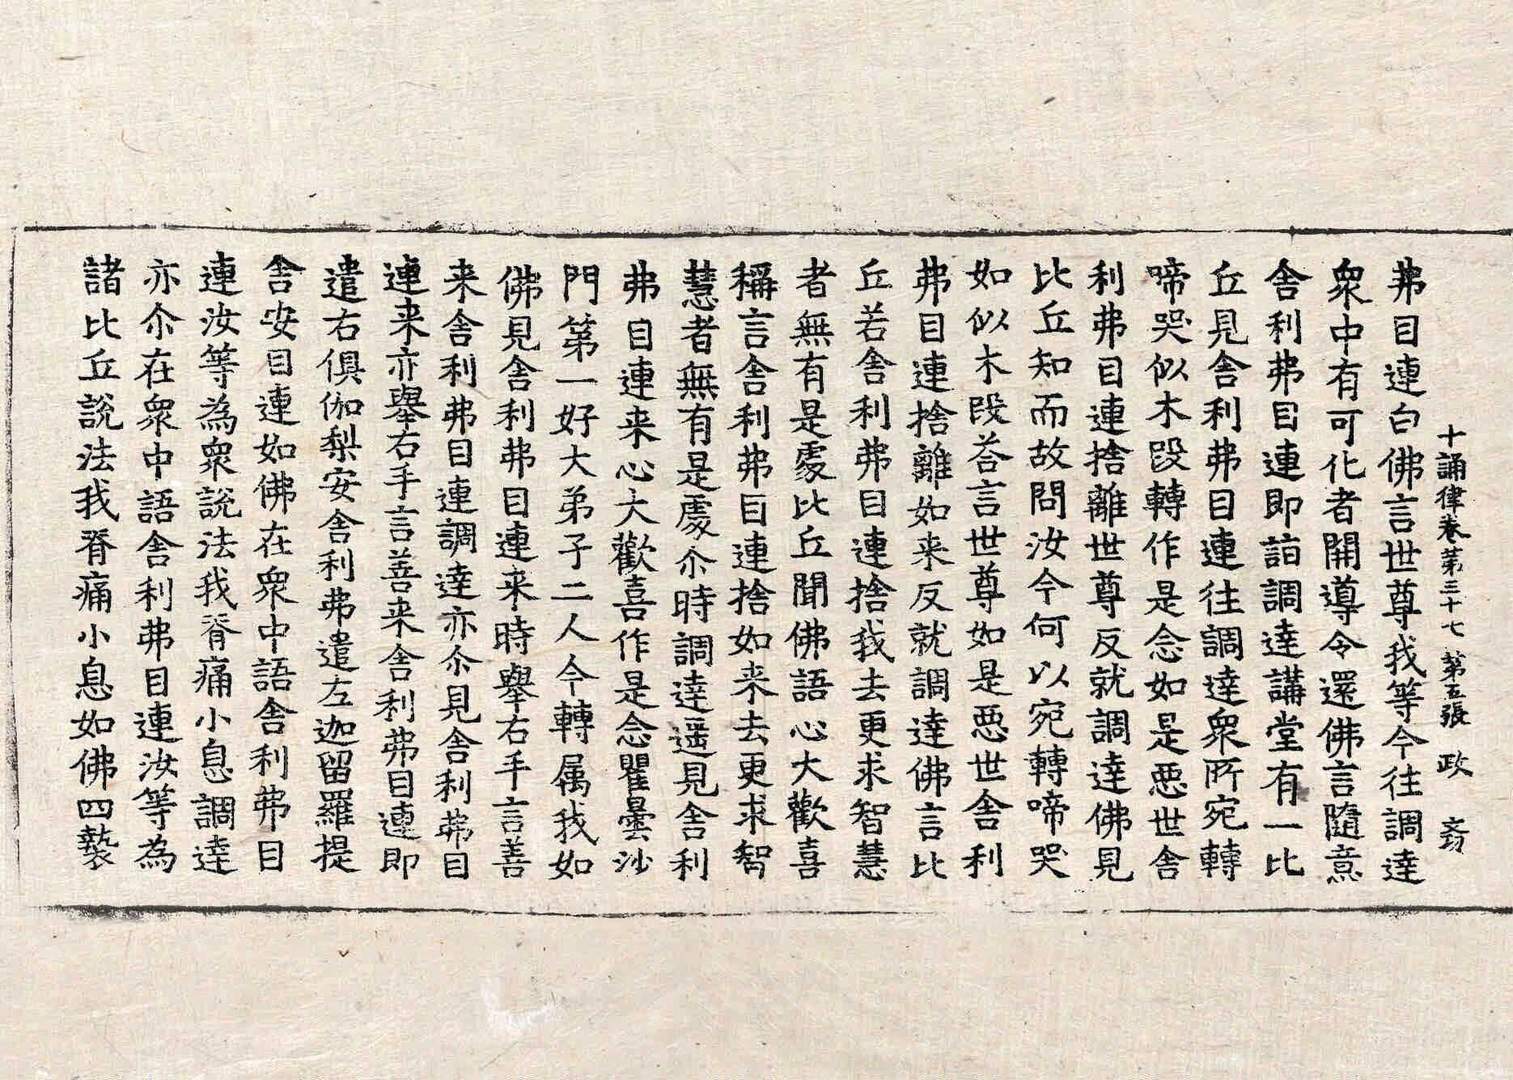 十誦律卷第三十七 第五張 政
弗目連白佛言世尊我等今往調達
衆中有可化者開導令還佛言隨意
舍利弗目連即詣調達講堂有一比
丘見舍利弗目連往調達衆所宛轉
啼哭似木段轉作是念如是惡世舍
利弗目連捨離世尊反就調達佛見
比丘知而故問汝今何以宛轉啼哭
如似木段荅言世尊如是惡世舍利
弗目連捨離如来反就調達佛言比
丘若舍利弗目連捨我去更求智慧
者無有是處比丘聞佛語心大歡喜
稱言舍利弗目連捨如来去更求智
慧者無有是處尒時調達遥見舍利
弗目連来心大歡喜作是念瞿曇沙
門第一好大弟子二人今轉属我如
佛見舍利弗目連来時舉右手言善
来舍利弗目連調達亦尒見舍利弗目
連来亦舉右手言善来舍利弗目連即
遣右俱伽梨安舍利弗遣左迦留羅提
舍安目連如佛在衆中語舍利弗目
連汝等為衆說法我脊痛小息調達
亦尒在衆中語舍利弗目連汝等為
諸比丘說法我脊痛小息如佛四褺